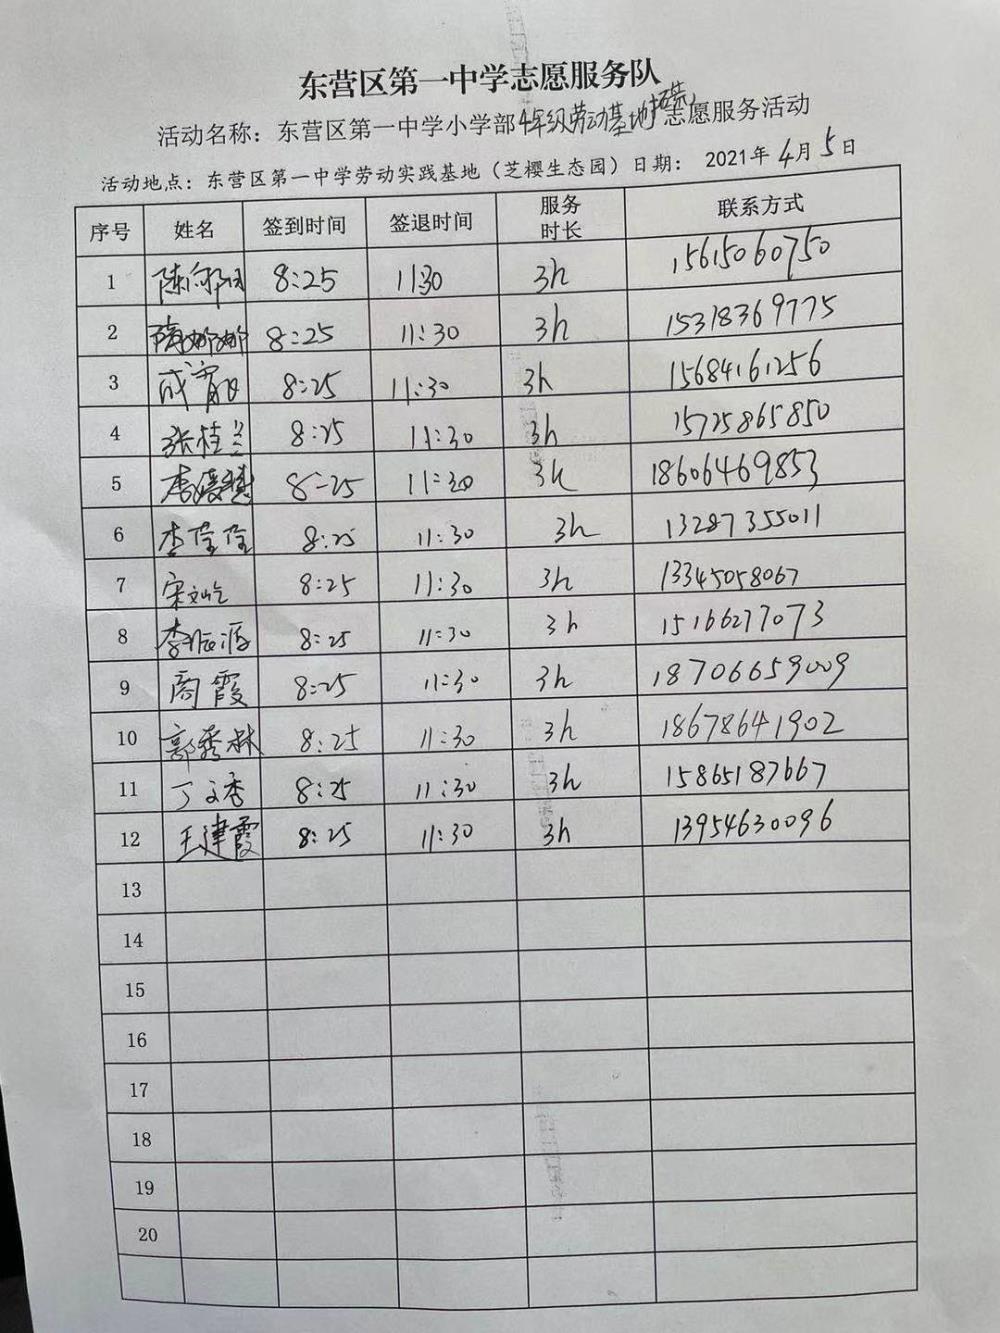 东营区第一中学志愿服务队
活动名称：东营区第一中学小学部4年级劳动基地志愿服务活动
活动地点：东营区第一中学劳动实践基地（芝樱生态园）日期： 2021年4月5日
序号 姓名 签到时间 签退时间 服务时长 联系方式
1 8:25 11:30 3h 15615060750
2 陶娜娜 8:25 11:30 3h 15318369775
3 8:25 11:30 3h 15684161256
4 张桂兰 8:25 11:30 3h 15725865850
5 8:25 11:30 3h 18606469853
6 李莹莹 8:25 11:30 3h 13287355011
7 8:25 11:30 3h 13345058067
8 8:25 11:30 3h 15166277073
9 周霞 8:25 11:30 3h 18706659009
10 郭秀林 8:25 11:30 3h 18678641902
11 丁文秀 8:25 11:30 3h 15865187667
12 王建霞 8:25 11:30 3h 13954630096
13
14
15
16
17
18
19
20